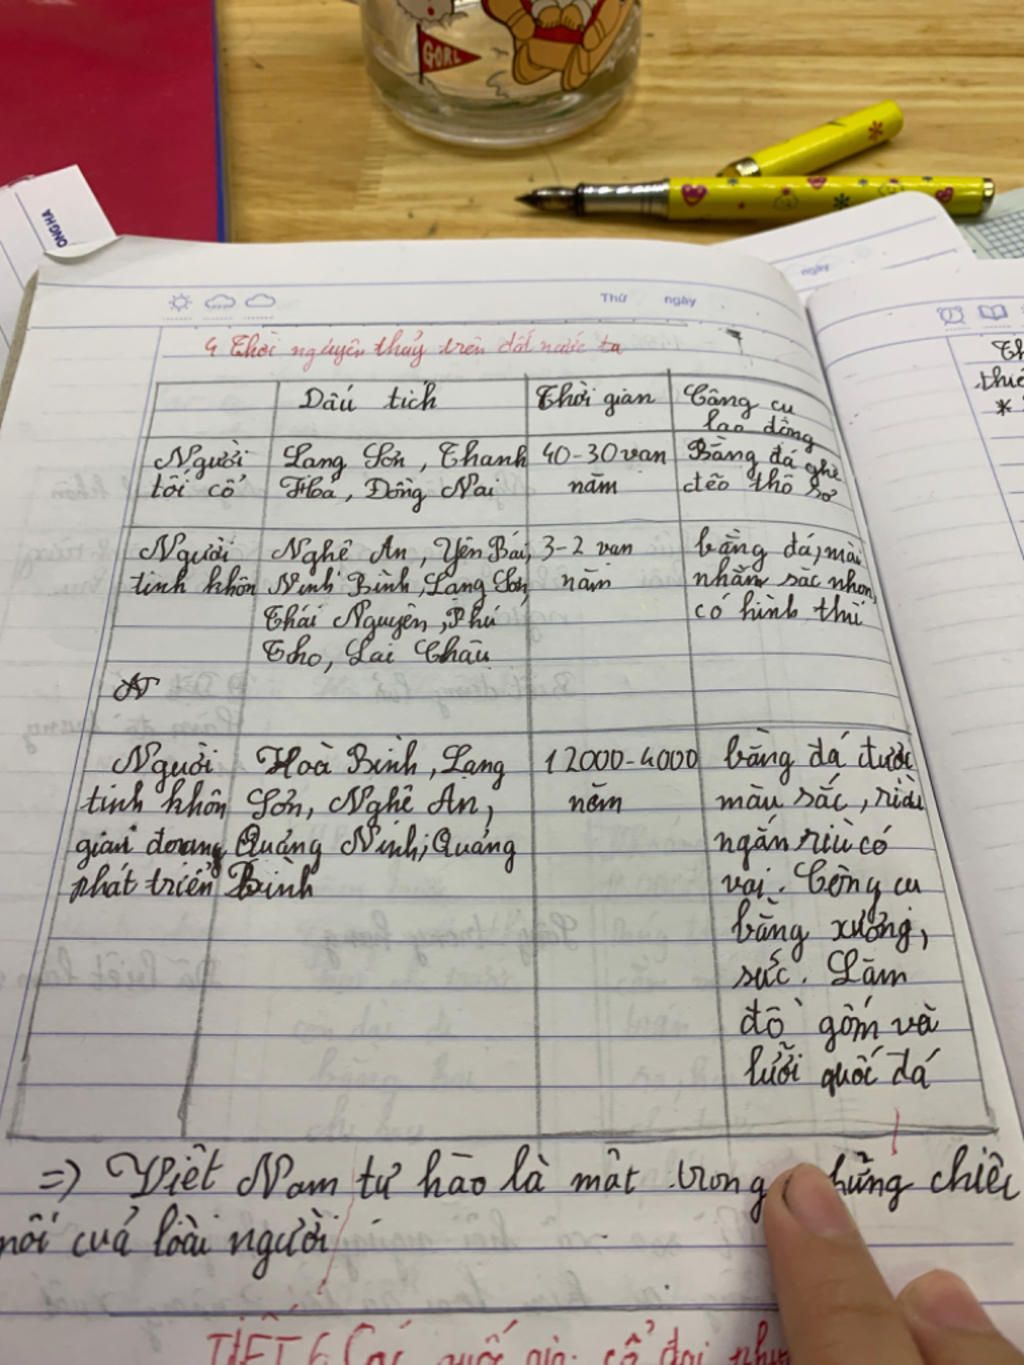 GORL
ONG HA
Thứ ngày
ngày
4 Thời nguyên thủy trên đất nước ta
Dấu tích Thời gian Công cụ
lao động
Người Lạng Sơn, Thanh 40-30 vạn Bằng đá ghè
tối cổ Hoá, Đồng Nai năm đẽo thô sơ
Người Nghệ An, Yên Bái, 3-2 vạn bằng đá, mài
tinh khôn Ninh Bình, Lạng Sơn, năm nhằm sắc nhọn,
Thái Nguyên, Phú có hình thù
Thọ, Lai Châu
Người Hoà Bình, Lạng 12000-4000 bằng đá được
tinh khôn Sơn, Nghệ An, năm màu sắc, rìu
giai đoạng Quảng Ninh, Quảng ngắn rìu có
phát triển Bình vai. Công cụ
bằng xương,
sức. Làm
đồ gốm và
lưỡi quốc đá
=> Việt Nam tự hào là một trong những chiêc
nôi của loài người
TIẾT 6 Các quốc gia cổ đại
Th
thiê
*